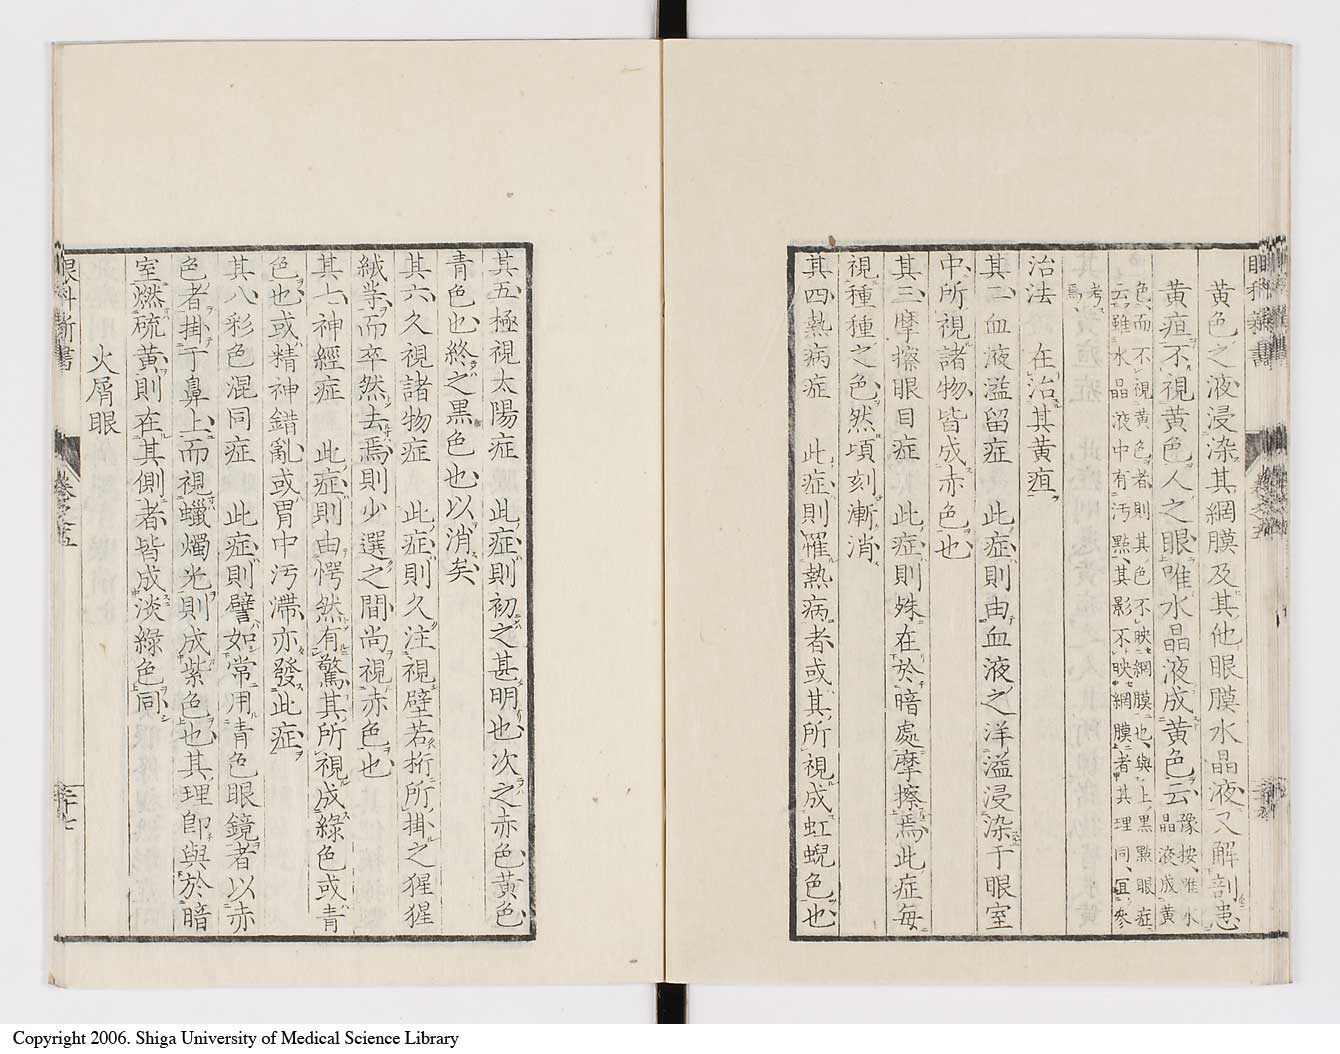 黄色之液浸染其網膜及其他眼膜水晶液又解剖患
黄疸不視黄色人之眼唯水晶液成黄色云豫按唯水晶液成黄
色而不視黄色者則其色不映網膜也與上黒點眼症
云雖水晶液中有汚點其影不映網膜者其理同宜參
考焉
治法　在治其黄疸
其二血液溢留症　此症則由血液之洋溢浸染于眼室
中所視諸物皆成赤色也
其三摩擦眼目症　此症則殊在於暗處摩擦焉此症毎
視種種之色然頃刻漸消
其四熱病症　此症則罹熱病者或其所視成虹蜺色也
眼科新書
卷之五
其五極視太陽症　此症則初之甚明也次之赤色黄色
青色也終之黒色也以消矣
其六久視諸物症　此症則久注視壁若桁所掛之猩猩
絨等而卒然去焉則少選之間尚視赤色也
其七神經症　此症則由愕然有驚其所視成緑色或青
色也或精神錯亂或胃中汚滯亦發此症
其八彩色混同症　此症則譬如常用青色眼鏡者以赤
色者掛于鼻上而視蠟燭光則成紫色也其理即與於暗
室燃硫黄則在其側者皆成淡緑色同
火屑眼
眼科新書
卷之五
二十七
Copyright 2006. Shiga University of Medical Science Library